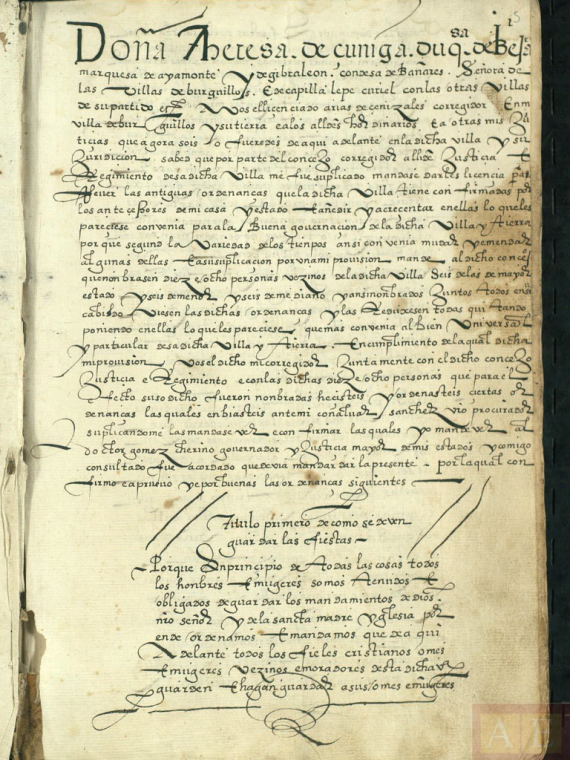 Doña Theresa de cuniga. duqsa. de Beja
marquesa de ayamonte y de gibraleon. condesa de Bañares. Señora de
las Villas de burguillos. E de capilla lepe curiel con las otras Villas
de su partido etc. A Vos el licenciado arias de cenizales corregidor En mi
villa de bur guillos y su tierra e a los alldes hordinarios E a otras mis Ju
ticias que agora sois o fueredes de aqui adelante en la dicha villa y su
Juridicion sabed que por parte del concejo corregidor alldes Justicia E
Regimiento desa dicha Villa me fue suplicado mandase daros licencia pa
hever las antiguas ordenancas que la dicha Villa tiene confirmadas por
los antecessores de mi casa y estado E añedir y acrecentar en ellas lo que les
pareciese convenia para la Buena governacion de la dicha Villa y tierra
por que segund la Variedad de los tienpos ansi convenia mudar y emendar
algunas dellas E a su suplicacion por una mi provision mande al dicho concejo
que nonbrasen diez e ocho personas vezinos de la dicha Villa Seis de las de mayor
estado y seis de menor y seis de mediano y ansi nonbrados Juntos todos en su
cabildo Viesen las dichas ordenancas y las Reduxesen todas quitando
poniendo en ellas lo que les pareciese que mas convenia al bien Universal
y particular desa dicha Villa y tierra. En cumplimiento de la qual dicha
mi provision Vos el dicho mi corregidor Juntamente con el dicho concejo
Justicia e Regimiento e con las dichas diez e ocho personas que para el
Efecto suso dicho fueron nonbradas hecisteis y ordenasteis ciertas or
denancas las quales enbiasteis ante mi con luis sanchez Vro procurador
suplicandome las mandase ver e confirmar las quales yo mande ver al
Doctor gomez therino governador y Justicia mayor de mis estados y comigo
consultado fue acordado que devia mandar dar la presente. por la qual con
firmo e apruevo y e por buenas las ordenancas siguientes
Titulo primero de como se deven
guardar las fiestas
Porque En principio de todas las cosas todos
los honbres E mugeres somos tenudos E
obligados de guardar los mandamientos de dios
nro señor y de la sancta madre yglesia por
ende ordenamos E mandamos que de a qui
Adelante todos los fieles cristianos omes
E mugeres vezinos e moradores desta dicha va
guarden E hagan guardar a sus omes e mugeres